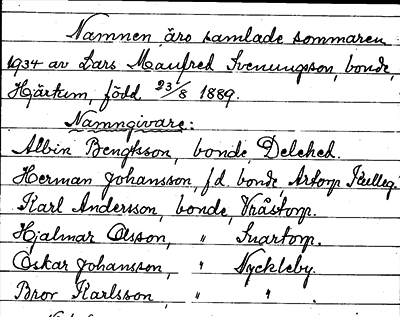 Namnen äro samlade sommaren
1934 av Lars Manfred Svenungsson, bonde,
Hjärtum, född 23/8 1889.
Namngivare:
Albin Bengtsson, bonde,
Herman Johansson, f.d. bonde, Artorp Kulleg.
Karl Andersson, bonde, Vråstorp.
Hjalmar Olsson, " Snartorp.
Oskar Johansson, " Nyckleby.
Bror Karlsson, " " .